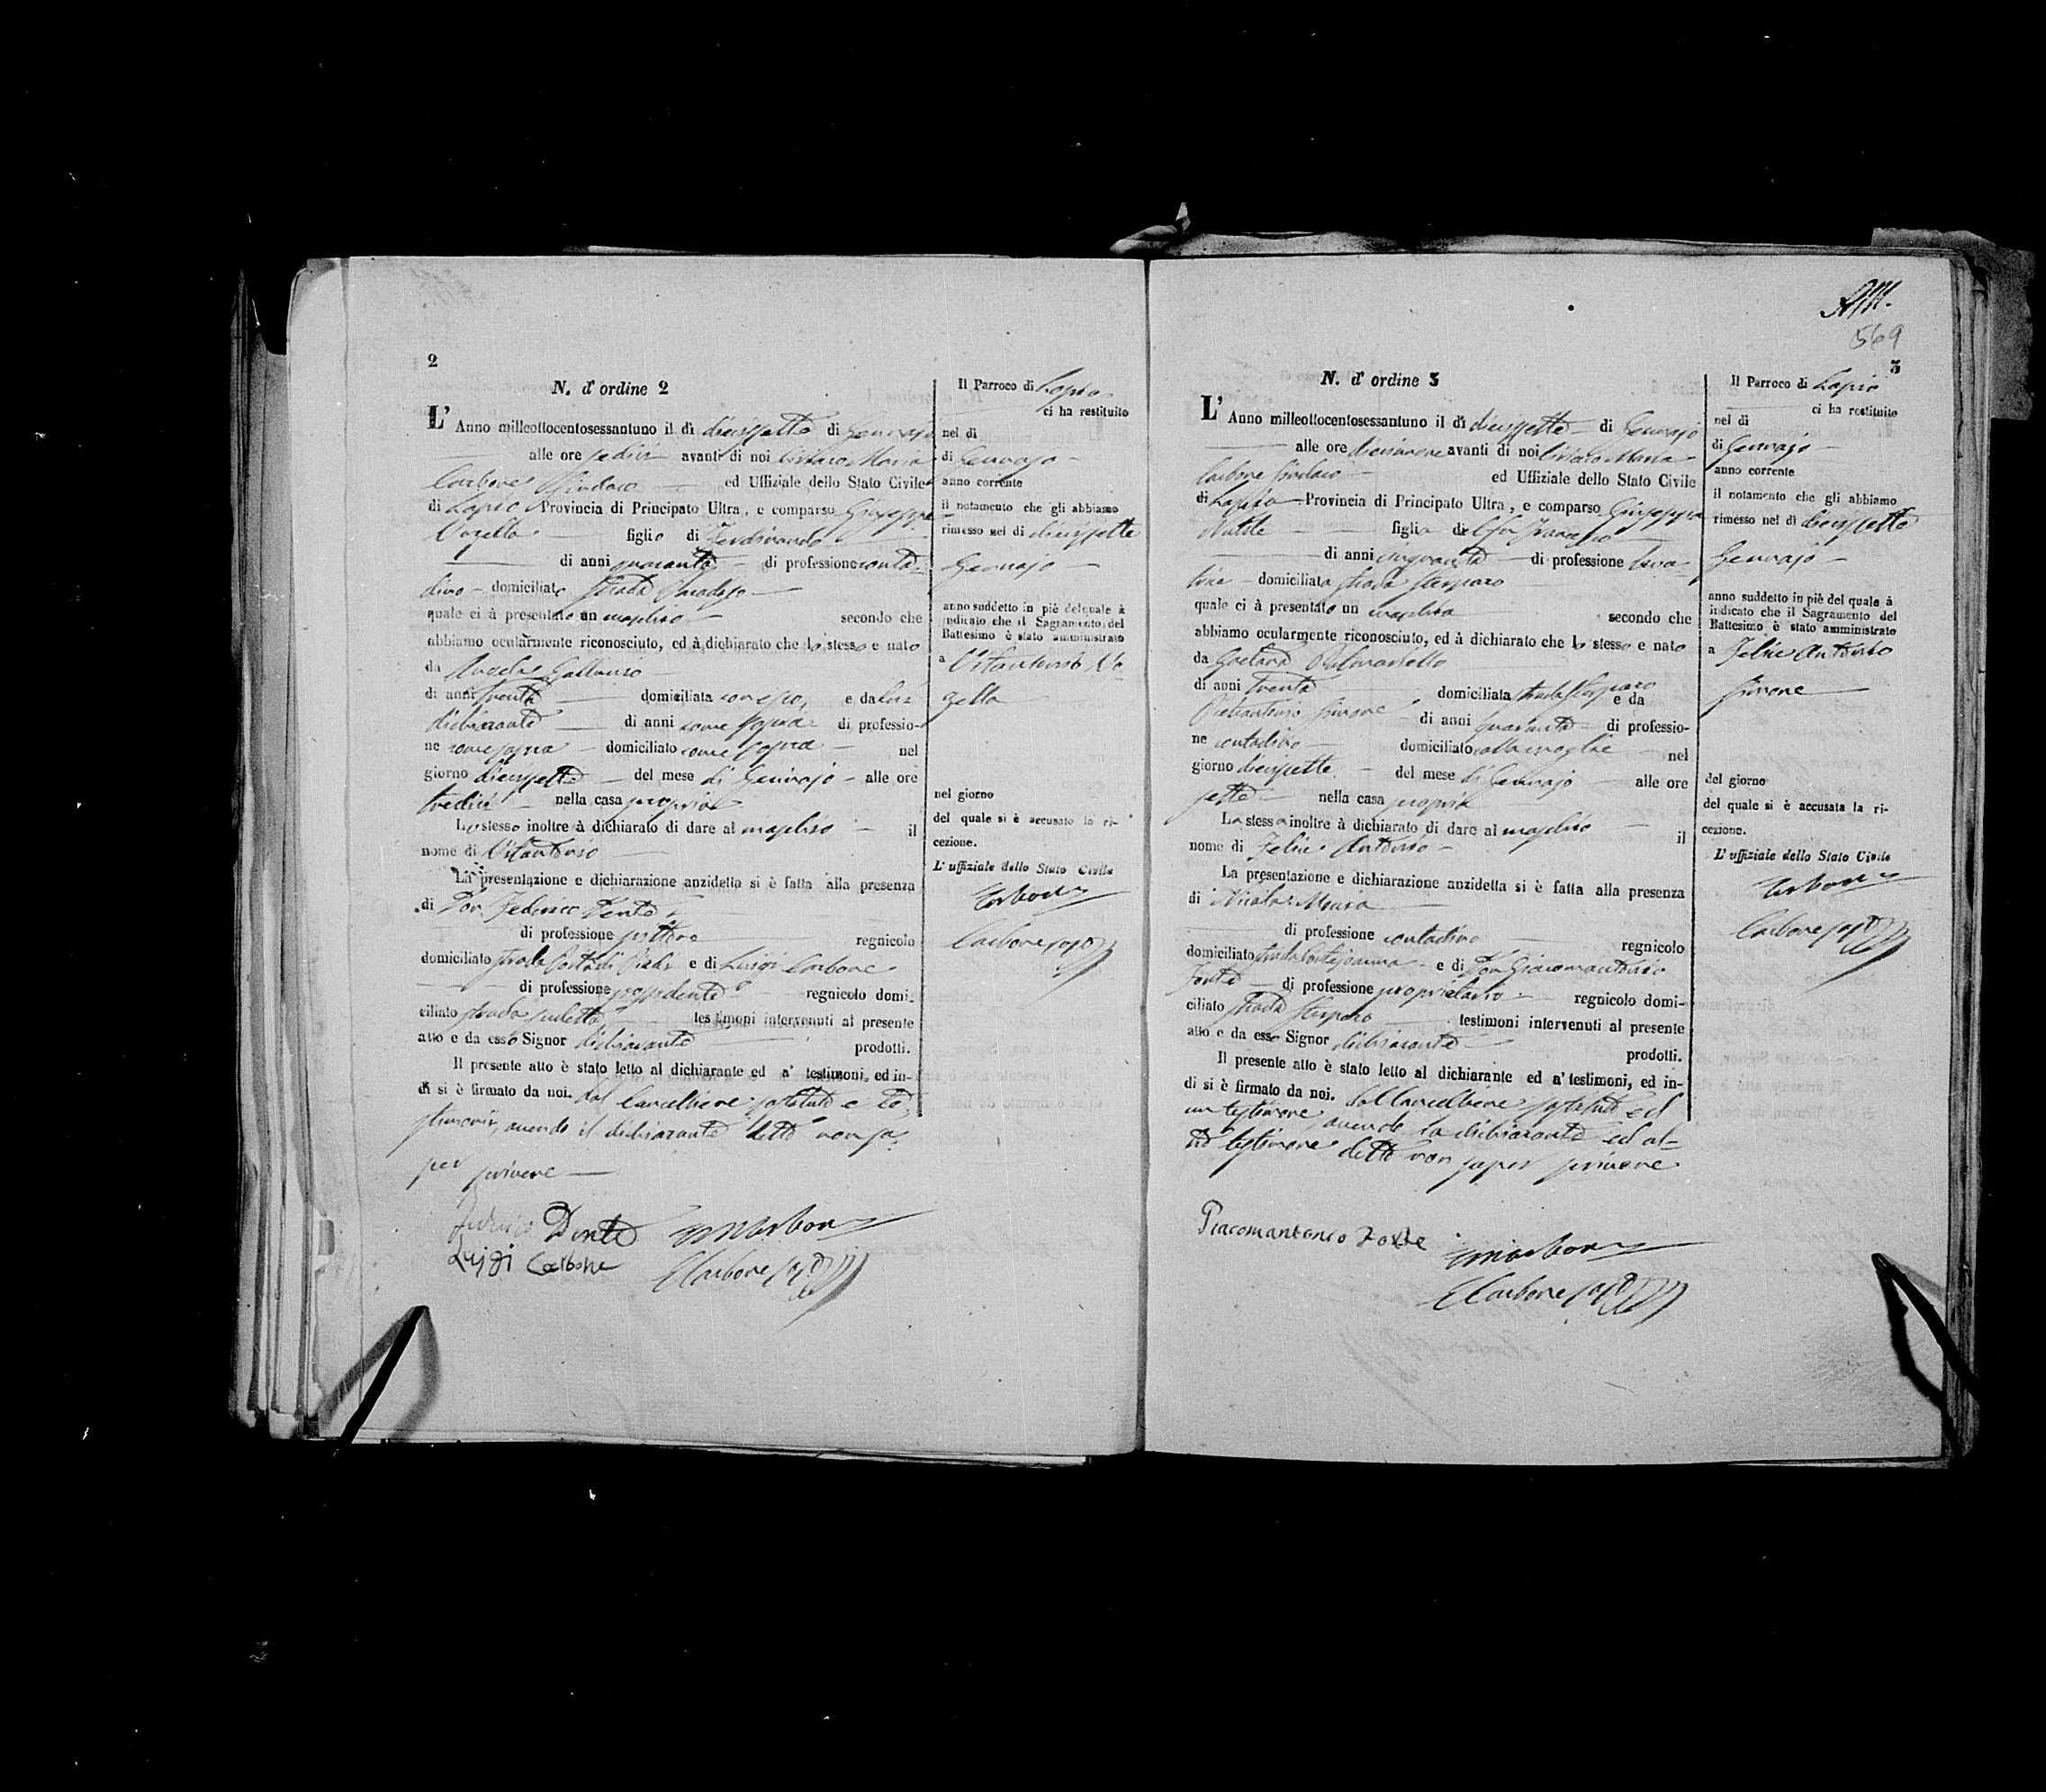 2
N. d' ordine 2
L' Anno milleottocentosessantuno il dì diecissette di Gennajo
alle ore sedici avanti di noi Maria
Carbone Sindaco ed Uffiziale dello Stato Civile
di Lapio Provincia di Principato Ultra, e comparso Giuseppe
figlio di Ferdinando
di anni quaranta di professione conta=
dino domiciliato strada
quale ci à presentato un maschio secondo che
abbiamo ocularmente riconosciuto, ed à dichiarato che lo stesso e nato
da Angela
di anni trenta domiciliata e da lui
dichiarante di anni come sopra di professio-
ne come sopra domiciliato come sopra nel
giorno diecissette del mese di Gennajo alle ore
tredici nella casa propria
Lo stesso inoltre à dichiarato di dare al maschio il
nome di Vitantonio
La presentazione e dichiarazione anzidetta si è fatta alla presenza
di Don Federico Dente
di professione regnicolo
domiciliato strada e di Luigi Carbone
di professione regnicolo domi-
ciliato strada sudetta testimoni intervenuti al presente
atto e da esso Signor dichiarante prodotti.
Il presente atto è stato letto al dichiarante ed a' testimoni, ed in-
di si è firmato da noi. dal Cancelliere sostituto e te=
stimonii, avendo il dichiarante detto non sa=
per scrivere
Federico Dente
Luigi Carbone
Carbone
Il Parroco di Lapio
ci ha restituito
nel di
di Gennajo
anno corrente
il notamento che gli abbiamo
rimesso nel di diecissette
Gennajo
anno suddetto in piè del quale à
indicato che il Sagramento del
Battesimo è stato amministrato
a Vitantonio
nel giorno
del quale si è accusato la ri-
cezione.
L' uffiziale dello Stato Civile
Carbone
3
569
N. d' ordine 3
L' Anno milleottocentosessantuno il dì diecissette di Gennajo
alle ore diecinnove avanti di noi Maria
Carbone Sindaco ed Uffiziale dello Stato Civile
di Lapio Provincia di Principato Ultra, e comparso Giuseppa
figlia di
di anni cinquanta di professione leva=
trice domiciliata strada
quale ci à presentato un maschio secondo che
abbiamo ocularmente riconosciuto, ed à dichiarato che lo stesso e nato
da Gaetana
di anni trenta domiciliata strada e da
Simone di anni quaranta di professio-
ne contadino domiciliato colla moglie nel
giorno diecissette del mese di Gennajo alle ore
sette nella casa propria
La stessa inoltre à dichiarato di dare al maschio il
nome di Felice Antonio
La presentazione e dichiarazione anzidetta si è fatta alla presenza
di Nicola
di professione contadino regnicolo
domiciliato strada e di Don Giacomantonio
Forte di professione proprietario regnicolo domi-
ciliato strada testimoni intervenuti al presente
atto e da esso Signor dichiarante prodotti.
Il presente atto è stato letto al dichiarante ed a' testimoni, ed in-
di si è firmato da noi. dal Cancelliere sostituto ed
un testimone, avendo la dichiarante ed al=
tro testimone detto non saper scrivere
Giacomantonio Forte
Carbone
Il Parroco di Lapio
ci ha restituito
nel di
di Gennajo
anno corrente
il notamento che gli abbiamo
rimesso nel dì diecissette
Gennajo
anno suddetto in piè del quale à
indicato che il Sagramento del
Battesimo è stato amministrato
a Felice Antonio
Simone
del giorno
del quale si è accusata la ri-
cezione.
L' uffiziale dello Stato Civile
Carbone